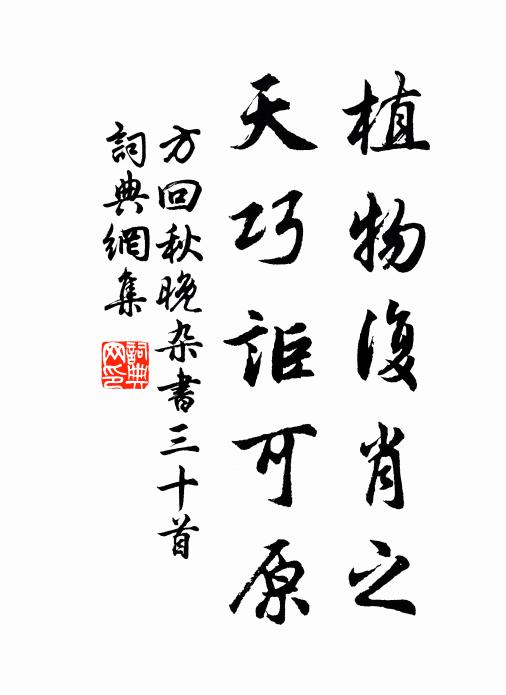 植物復肖之
天巧詎可原
方回秋晚杂書三十首
詞典網集
詞典網印